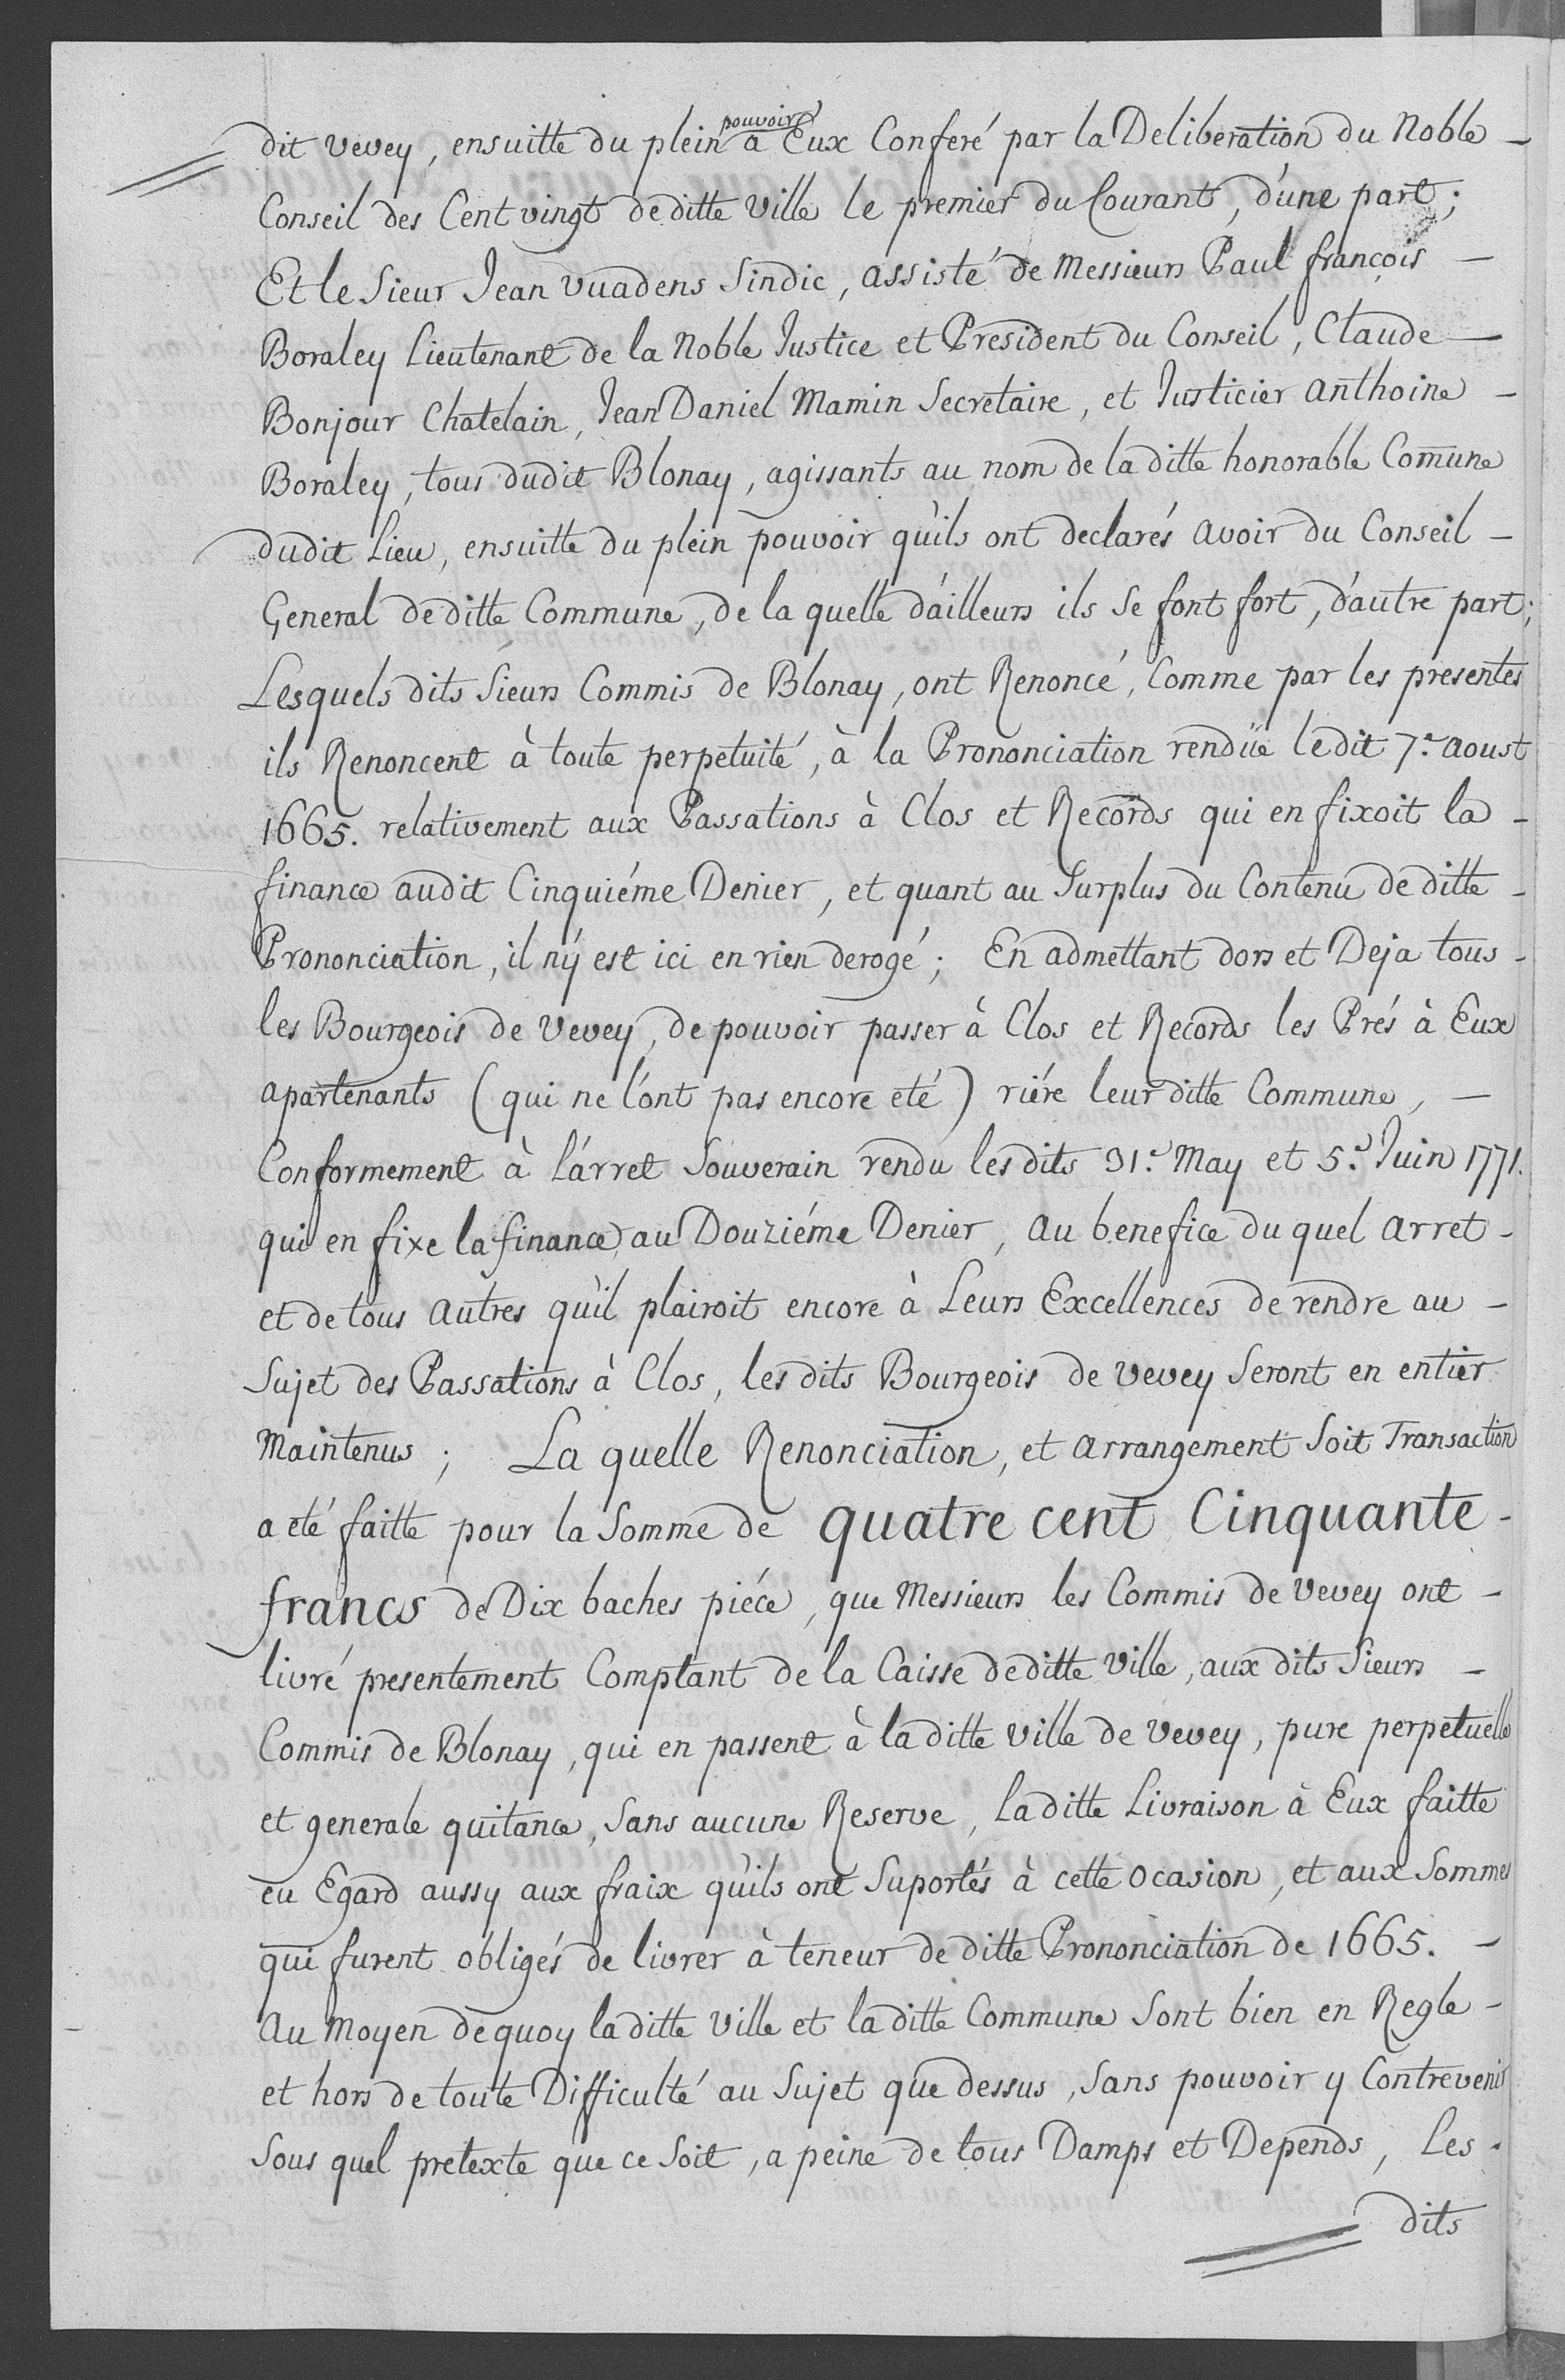 pouvoir
dit Vevey, ensuitte du plein à Eux Conferé par la Deliberation du Noble -
Conseil des Cent vingt de ditte Ville le premier du Courant, d'une part;
Et le Sieur Jean Vuadens Sindic, assisté de Messieurs Paul françois -
Boraley Lieutenant de la Noble Justice et President du Conseil, Claude -
Bonjour Chatelain, Jean Daniel Mamin Secretaire, et Justicier Anthoine -
Boraley, tous dudit Blonay, agissants au nom de la ditte honorable Comune
dudit Lieu, ensuitte du plein pouvoir qu'ils ont declarés avoir du Conseil -
General de ditte Commune, de la quelle d'ailleurs ils se font fort, d'autre part;
Lesquels dits Sieurs Commis de Blonay, ont Renoncé, Comme par les presentes
ils Renoncent à toute perpetuité, à la Prononciation rendüe le dit 7.e Aoust
1665. relativement aux Passations à Clos et Records qui en fixoit la -
finance audit Cinquiéme Denier, et quant au Surplus du Contenu de ditte -
Prononciation, il n'y est ici en rien derogé; En admettant dors et Deja tous -
les Bourgeois de Vevey, de pouvoir passer à Clos et Records les Prés à Eux
apartenants (qui ne l'ont pas encore eté) riére leur ditte Commune, -
Conformement à L'arret Souverain rendu les dits 31.e May et 5.e Juin 1771.
qui en fixe la finance au Douziéme Denier, au benefice du quel arret -
et de tous autres qu'il plairoit encore à Leurs Excellences de rendre au -
Sujet des Passations à Clos, les dits Bourgeois de Vevey Seront en entier
Maintenus; La quelle Renonciation, et arrangement Soit Transaction
a eté faitte pour la Somme de quatre cent Cinquante -
francs de Dix baches piéce, que Messieurs les Commis de Vevey ont -
livré presentement Comptant de la Caisse de ditte Ville, aux dits Sieurs -
Commis de Blonay, qui en passent à la ditte Ville de Vevey, pure perpetuelle
et generale quitance, Sans aucune Reserve, la ditte Livraison à Eux faitte
eu Egard aussy aux fraix qu'ils ont Suportés à cette Ocasion, et aux Sommes
qui furent obligés de livrer à teneur de ditte Prononciation de 1665. -
Au Moyen dequoy la ditte Ville et la ditte Commune Sont bien en Regle -
et hors de toute Difficulté au Sujet que dessus, Sans pouvoir y Contrevenir
Sous quel pretexte que ce Soit, a peine de tous Damps et Depends, Les -
dits